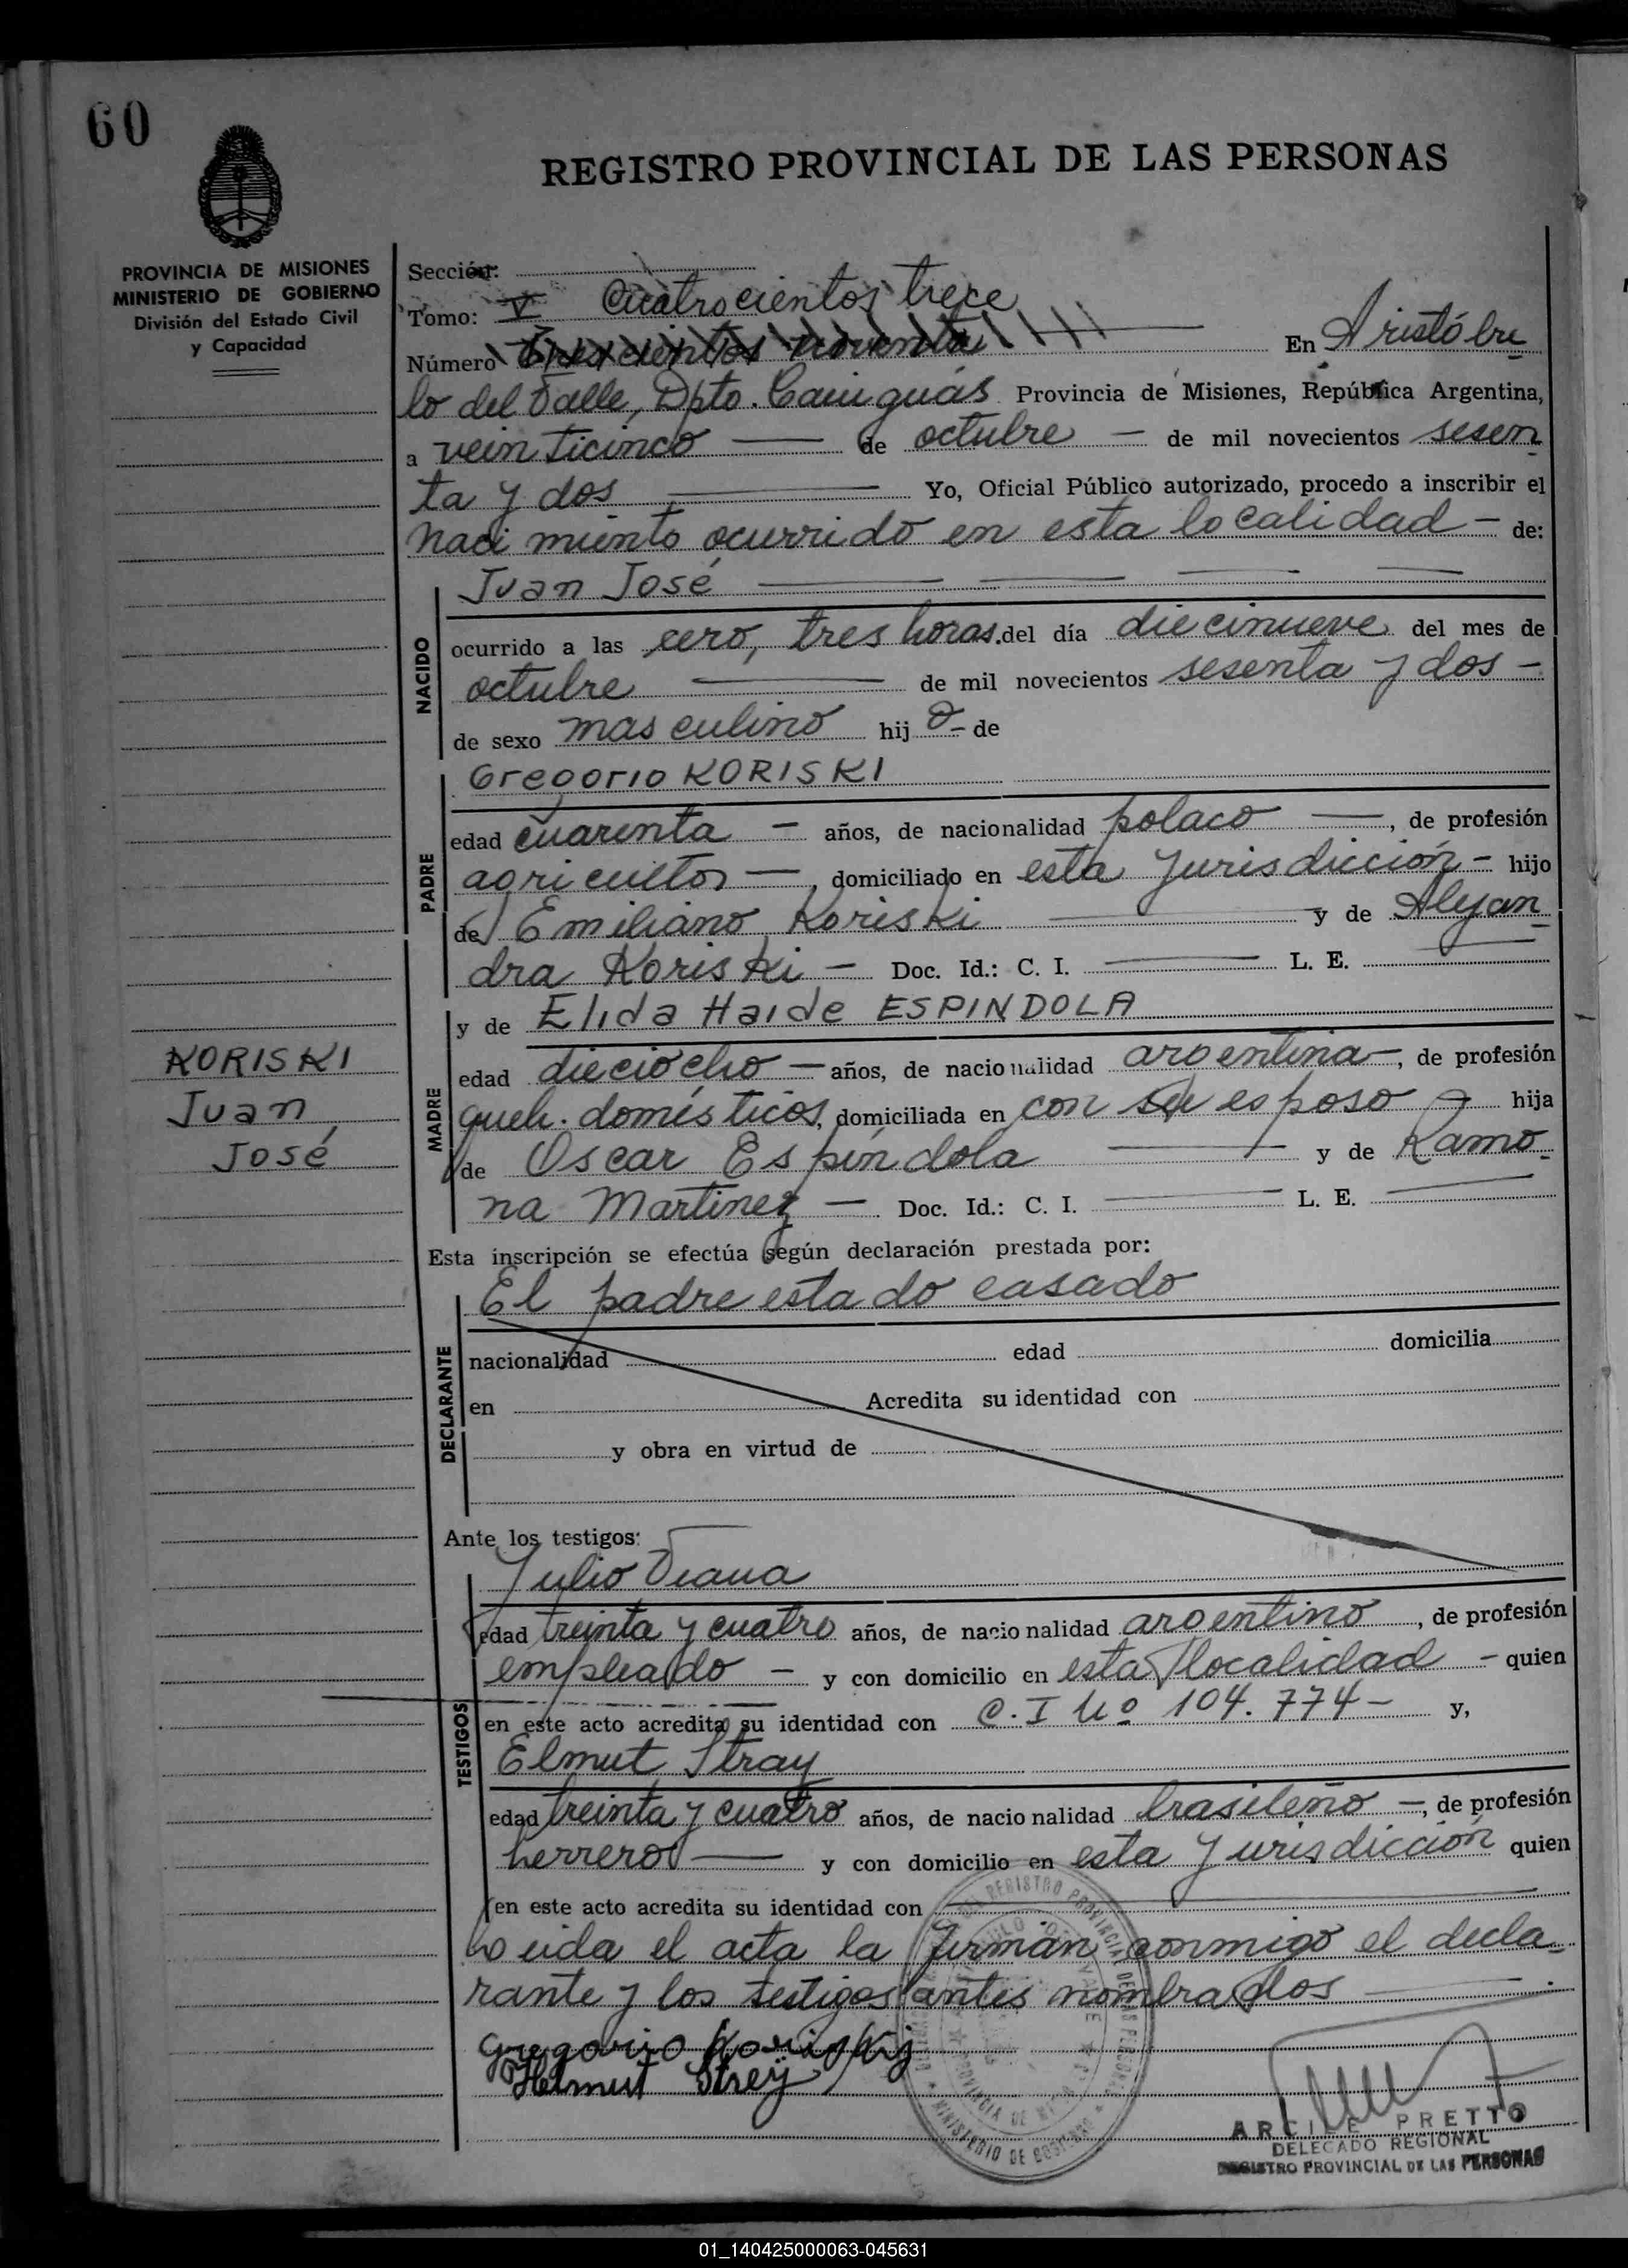 60
REGISTRO PROVINCIAL DE LAS PERSONAS
PROVINCIA DE MISIONES
MINISTERIO DE GOBIERNO
División del Estado Civil
y Capacidad
Sección:
Tomo: V Cuatrocientos trece
Número Trescientos noventa En Aristóbu
lo del Valle, Dpto. Cainguás Provincia de Misiones, República Argentina,
a veinticinco — de octubre — de mil novecientos sesen
ta y dos — Yo, Oficial Público autorizado, procedo a inscribir el
nacimiento ocurrido en esta localidad — de:
Juan José
NACIDO
ocurrido a las cero, tres horas. del día diecinueve del mes de
octubre — de mil novecientos sesenta y dos —
de sexo masculino hij o — de
Gregorio KORISKI
PADRE
edad cuarenta — años, de nacionalidad polaco —, de profesión
agricultor —, domiciliado en esta Jurisdicción — hijo
de Emiliano Koriski — y de Alejan
dra Koriski — Doc. Id.: C. I. — L. E.
y de Elida Haide ESPINDOLA
MADRE
edad dieciocho — años, de nacionalidad argentina —, de profesión
queh. domésticos, domiciliada en con su esposo — hija
de Oscar Espíndola — y de Ramo
na Martinez — Doc. Id.: C. I. — L. E. —
KORISKI
Juan
José
Esta inscripción se efectúa según declaración prestada por:
El padre estado casado
DECLARANTE
nacionalidad edad domicilia
en Acredita su identidad con
y obra en virtud de
Ante los testigos:
Julio Viana
TESTIGOS
edad treinta y cuatro años, de nacionalidad argentino, de profesión
empleado — y con domicilio en esta localidad — quien
en este acto acredita su identidad con C. I Nº 104.774 — y,
Elmut Stray
edad treinta y cuatro años, de nacionalidad brasileño —, de profesión
herrero — y con domicilio en esta Jurisdicción quien
en este acto acredita su identidad con
Leida el acta la firman conmigo el decla
rante y los testigos antes nombrados — .
Gregorio Koriskij
Helmut Strey
ARCILE PRETTO
DELEGADO REGIONAL
REGISTRO PROVINCIAL DE LAS PERSONAS
REGISTRO PROVINCIAL DE LAS PERSONAS
MINISTERIO DE GOBIERNO
PROVINCIA DE
01_140425000063-045631